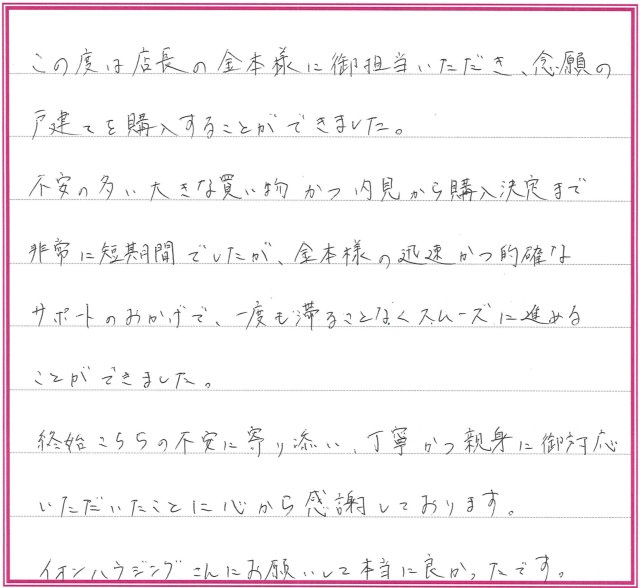 この度は店長の金本様に御担当いただき、念願の
戸建てを購入することができました。
不安の多い大きな買い物かつ内見から購入決定まで
非常に短期間でしたが、金本様の迅速かつ的確な
サポートのおかげで、一度も滞ることなくスムーズに進める
ことができました。
終始こちらの不安に寄り添い、丁寧かつ親身に御対応
いただいたことに心から感謝しております。
イオンハウジングさんにお願いして本当に良かったです。